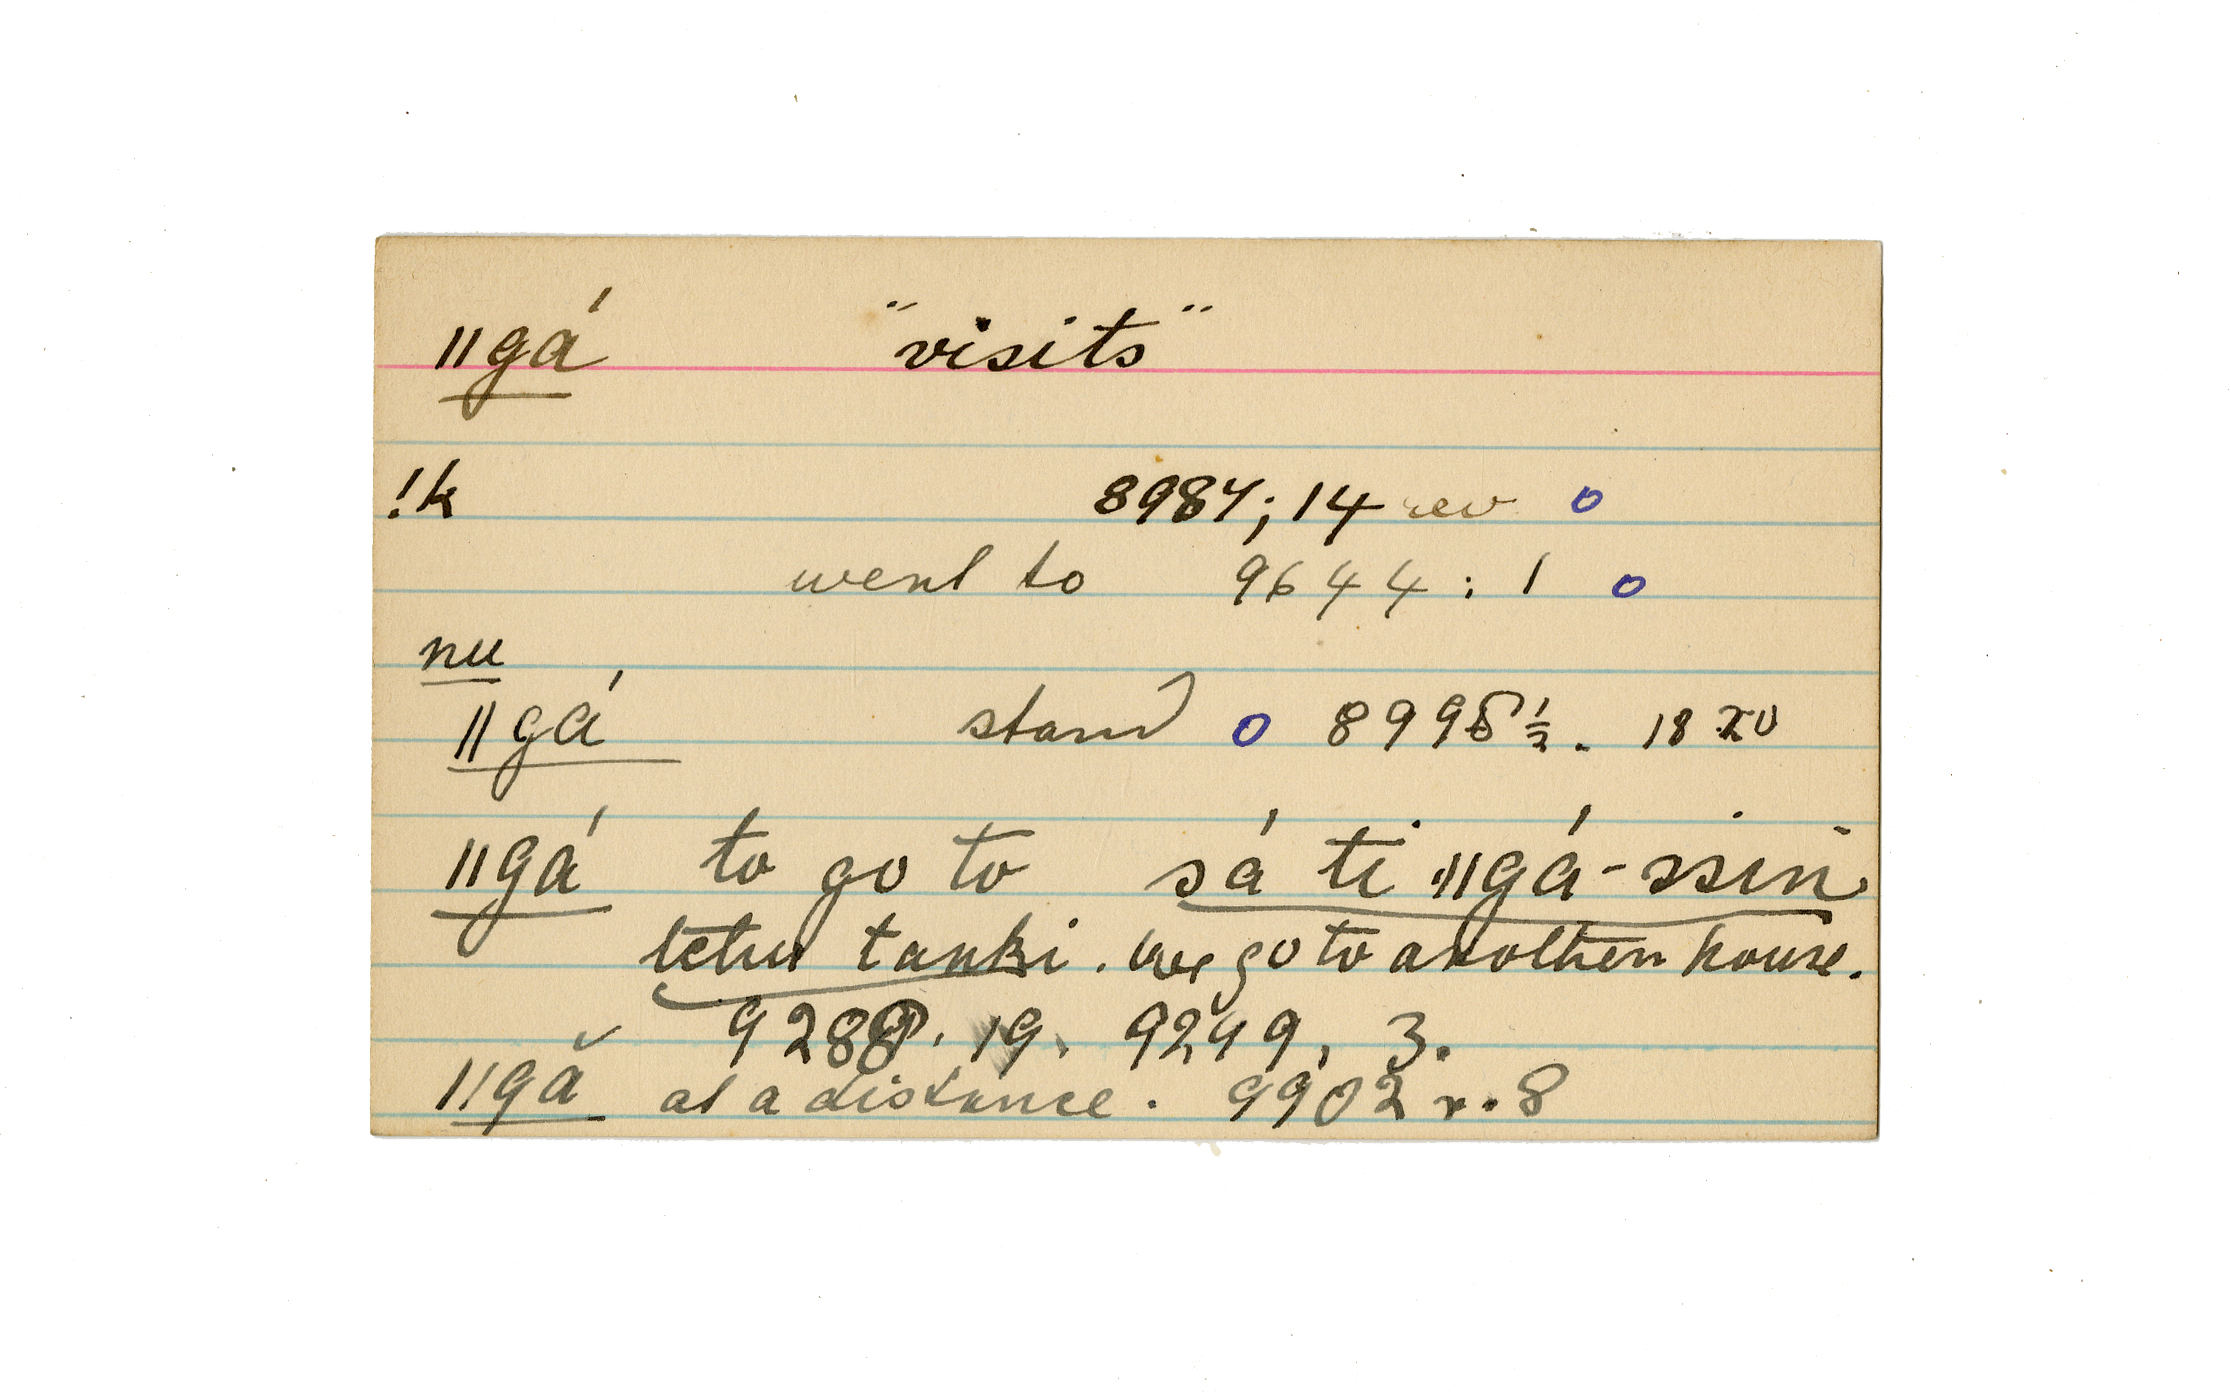 ǁgá "visits"
!k 8987; 14 rev o
went to 9644 : 1 o
nu
ǁgá stand o 8995½. 18 20
ǁgá to go to sá ti ǁgá-ssin
tetu tanki. we go to another house.
19. 9249, 3.
ǁgă at a distance. 9902 r. 8